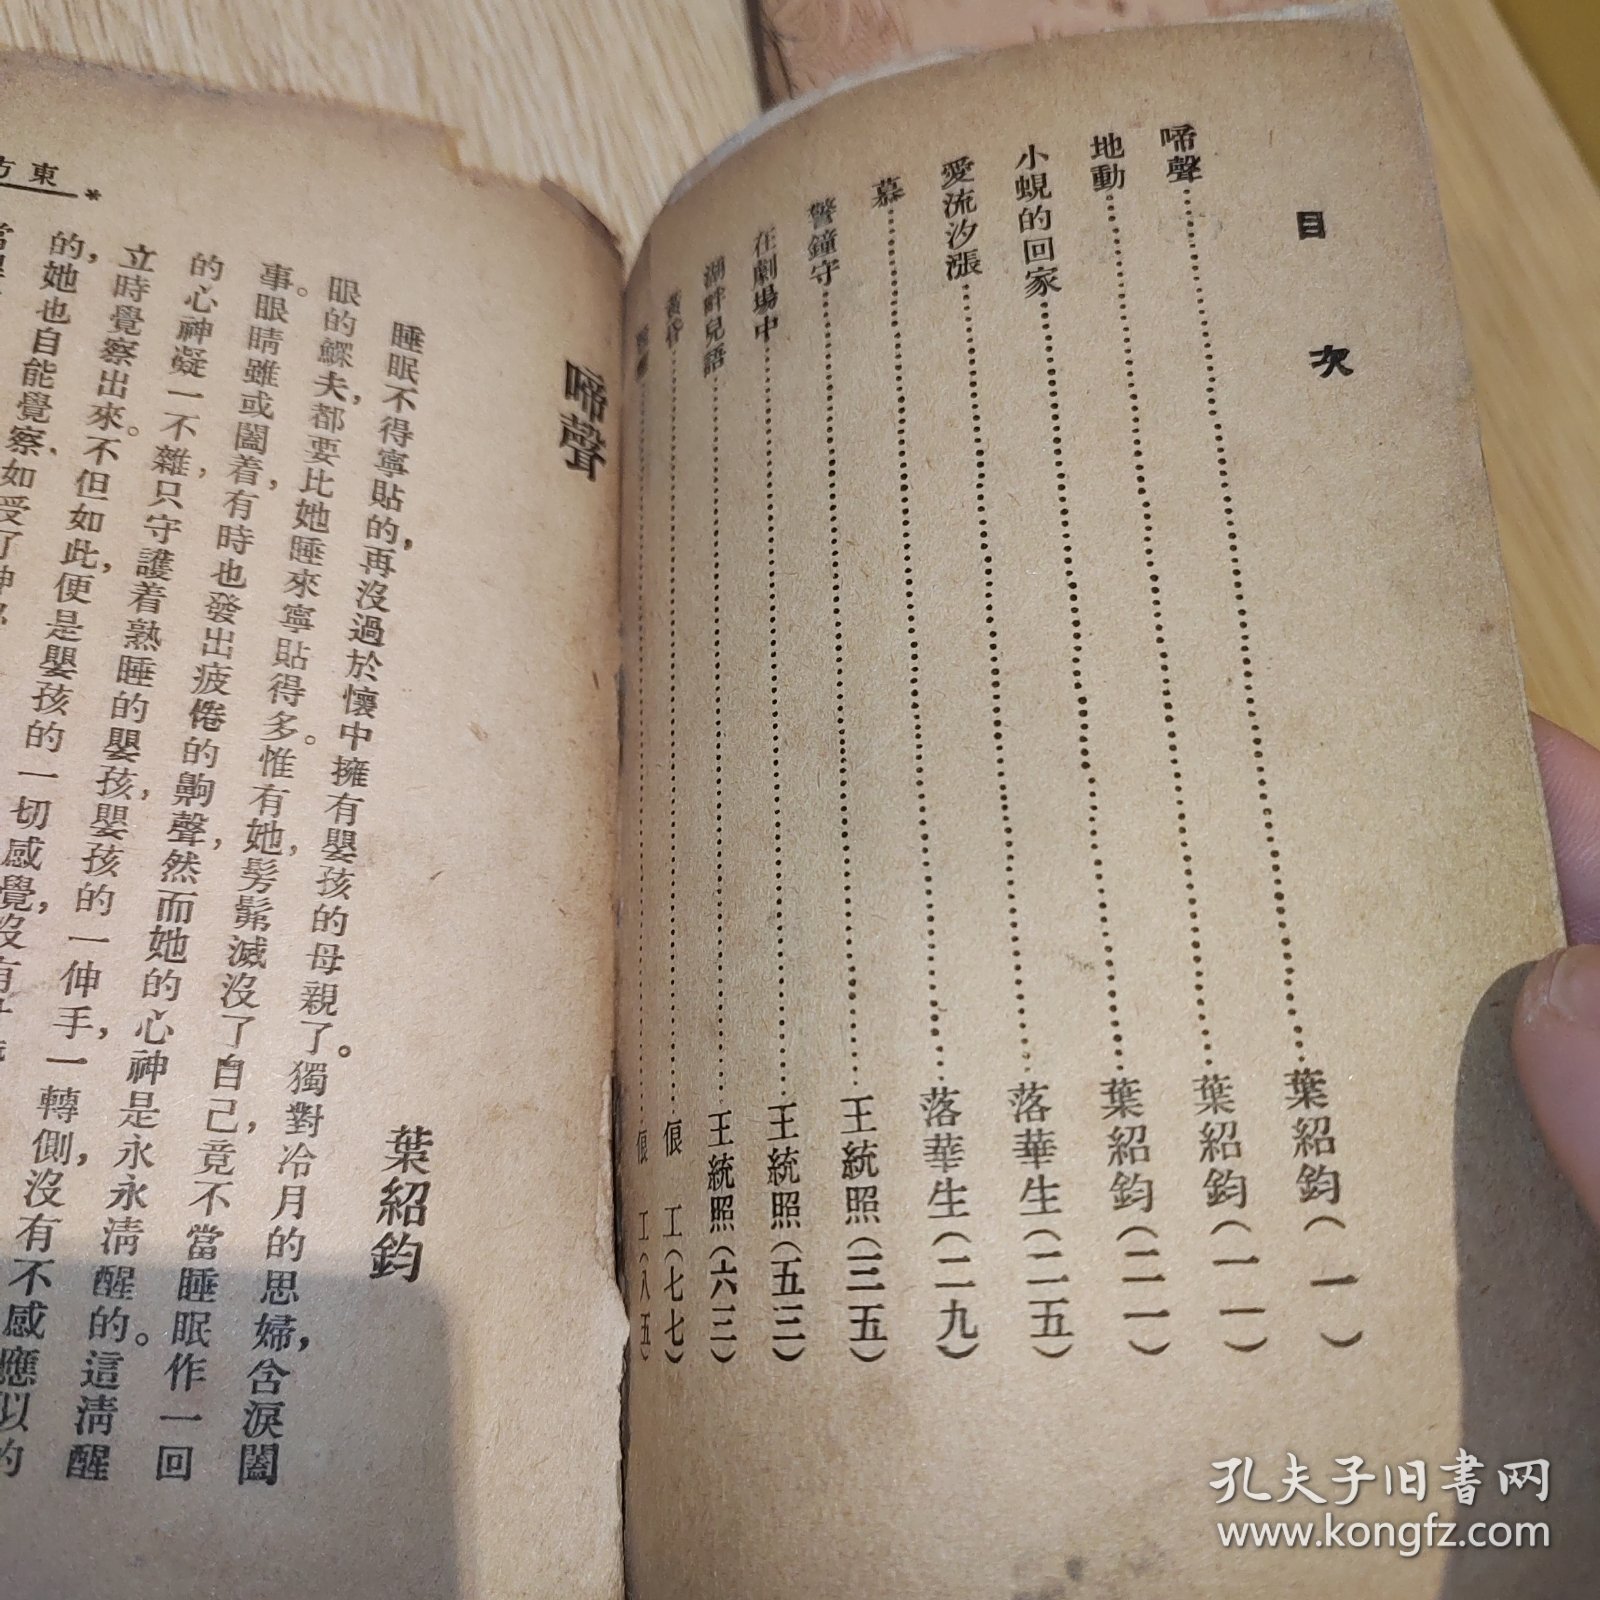 目次
啼聲……葉紹鈞(一)
地動……葉紹鈞(一一)
小蜆的回家……葉紹鈞(二一)
愛流汐漲……落華生(二五)
慕……落華生(二九)
警鐘守……王統照(三五)
在劇場中……王統照(五三)
湖畔兒語……王統照(六三)
黃昏……俍工(七七)
……俍工(八五)
東方
啼聲
葉紹鈞
睡眠不得寧貼的,再沒過於懷中擁有嬰孩的母親了。獨對冷月的思婦,含淚闔
眼的鰥夫,都要比她睡來寧貼得多。惟有她,髣髴滅沒了自己,竟不當睡眠作一回
事。眼睛雖或闔着,有時也發出疲倦的齁聲,然而她的心神是永永淸醒的。這淸醒
的心神凝一不雜,只守護着熟睡的嬰孩,嬰孩的一伸手,一轉側,沒有不感應似的
立時覺察出來。不但如此,便是嬰孩的一切感覺,沒有
的,她也自能覺察,如受了神
孔夫子旧书网
www.kongfz.com